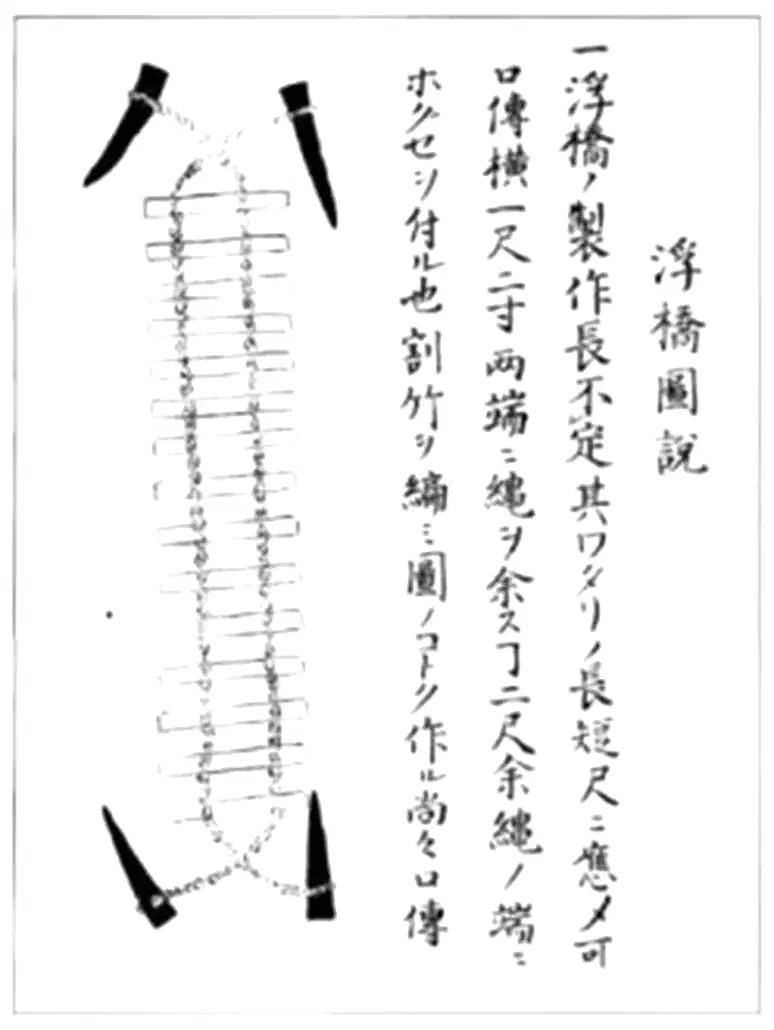 浮橋圖說
一浮橋ノ製作長不定其ワタリノ長短尺ニ應メ可
口傳橫一尺二寸両端ニ縄ヲ余スヿ二尺余縄ノ端ニ
ホクセヲ付ル也割竹ヲ編ミ圖ノコトク作ル尚々口傳